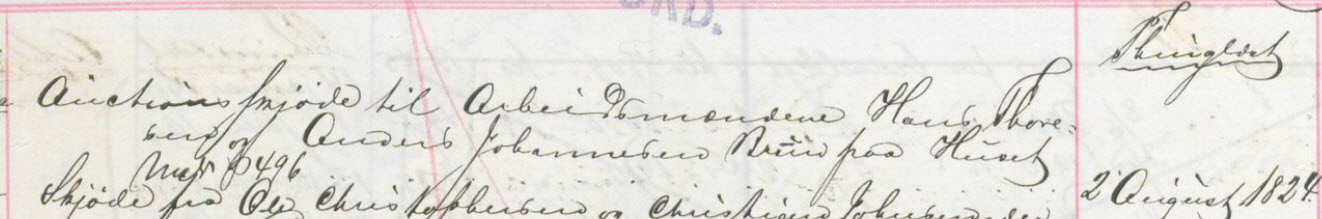 ORD.
Thinglæst
Auctionsskjøde til Arbeidsmændene Hans Thore-
sen og Anders Johannesen Bruun paa Huset
No 496
Skjøde fra Ole Christophersen og Christian Johnsen
2 August 1824.